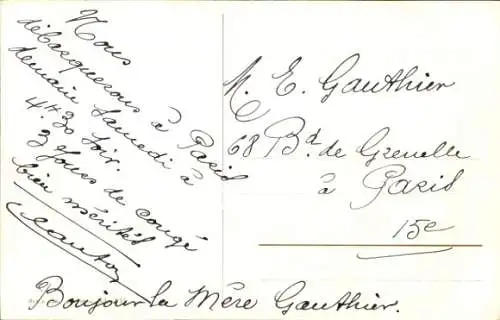 Nous
débarquerons à Paris
demain Samedi à
4h30 soir.
3 Jours de congé
bien mérités
M. E. Gauthier
68 Bd. de Grenelle
à Paris
15e
Bonjour la Mère Gauthier.